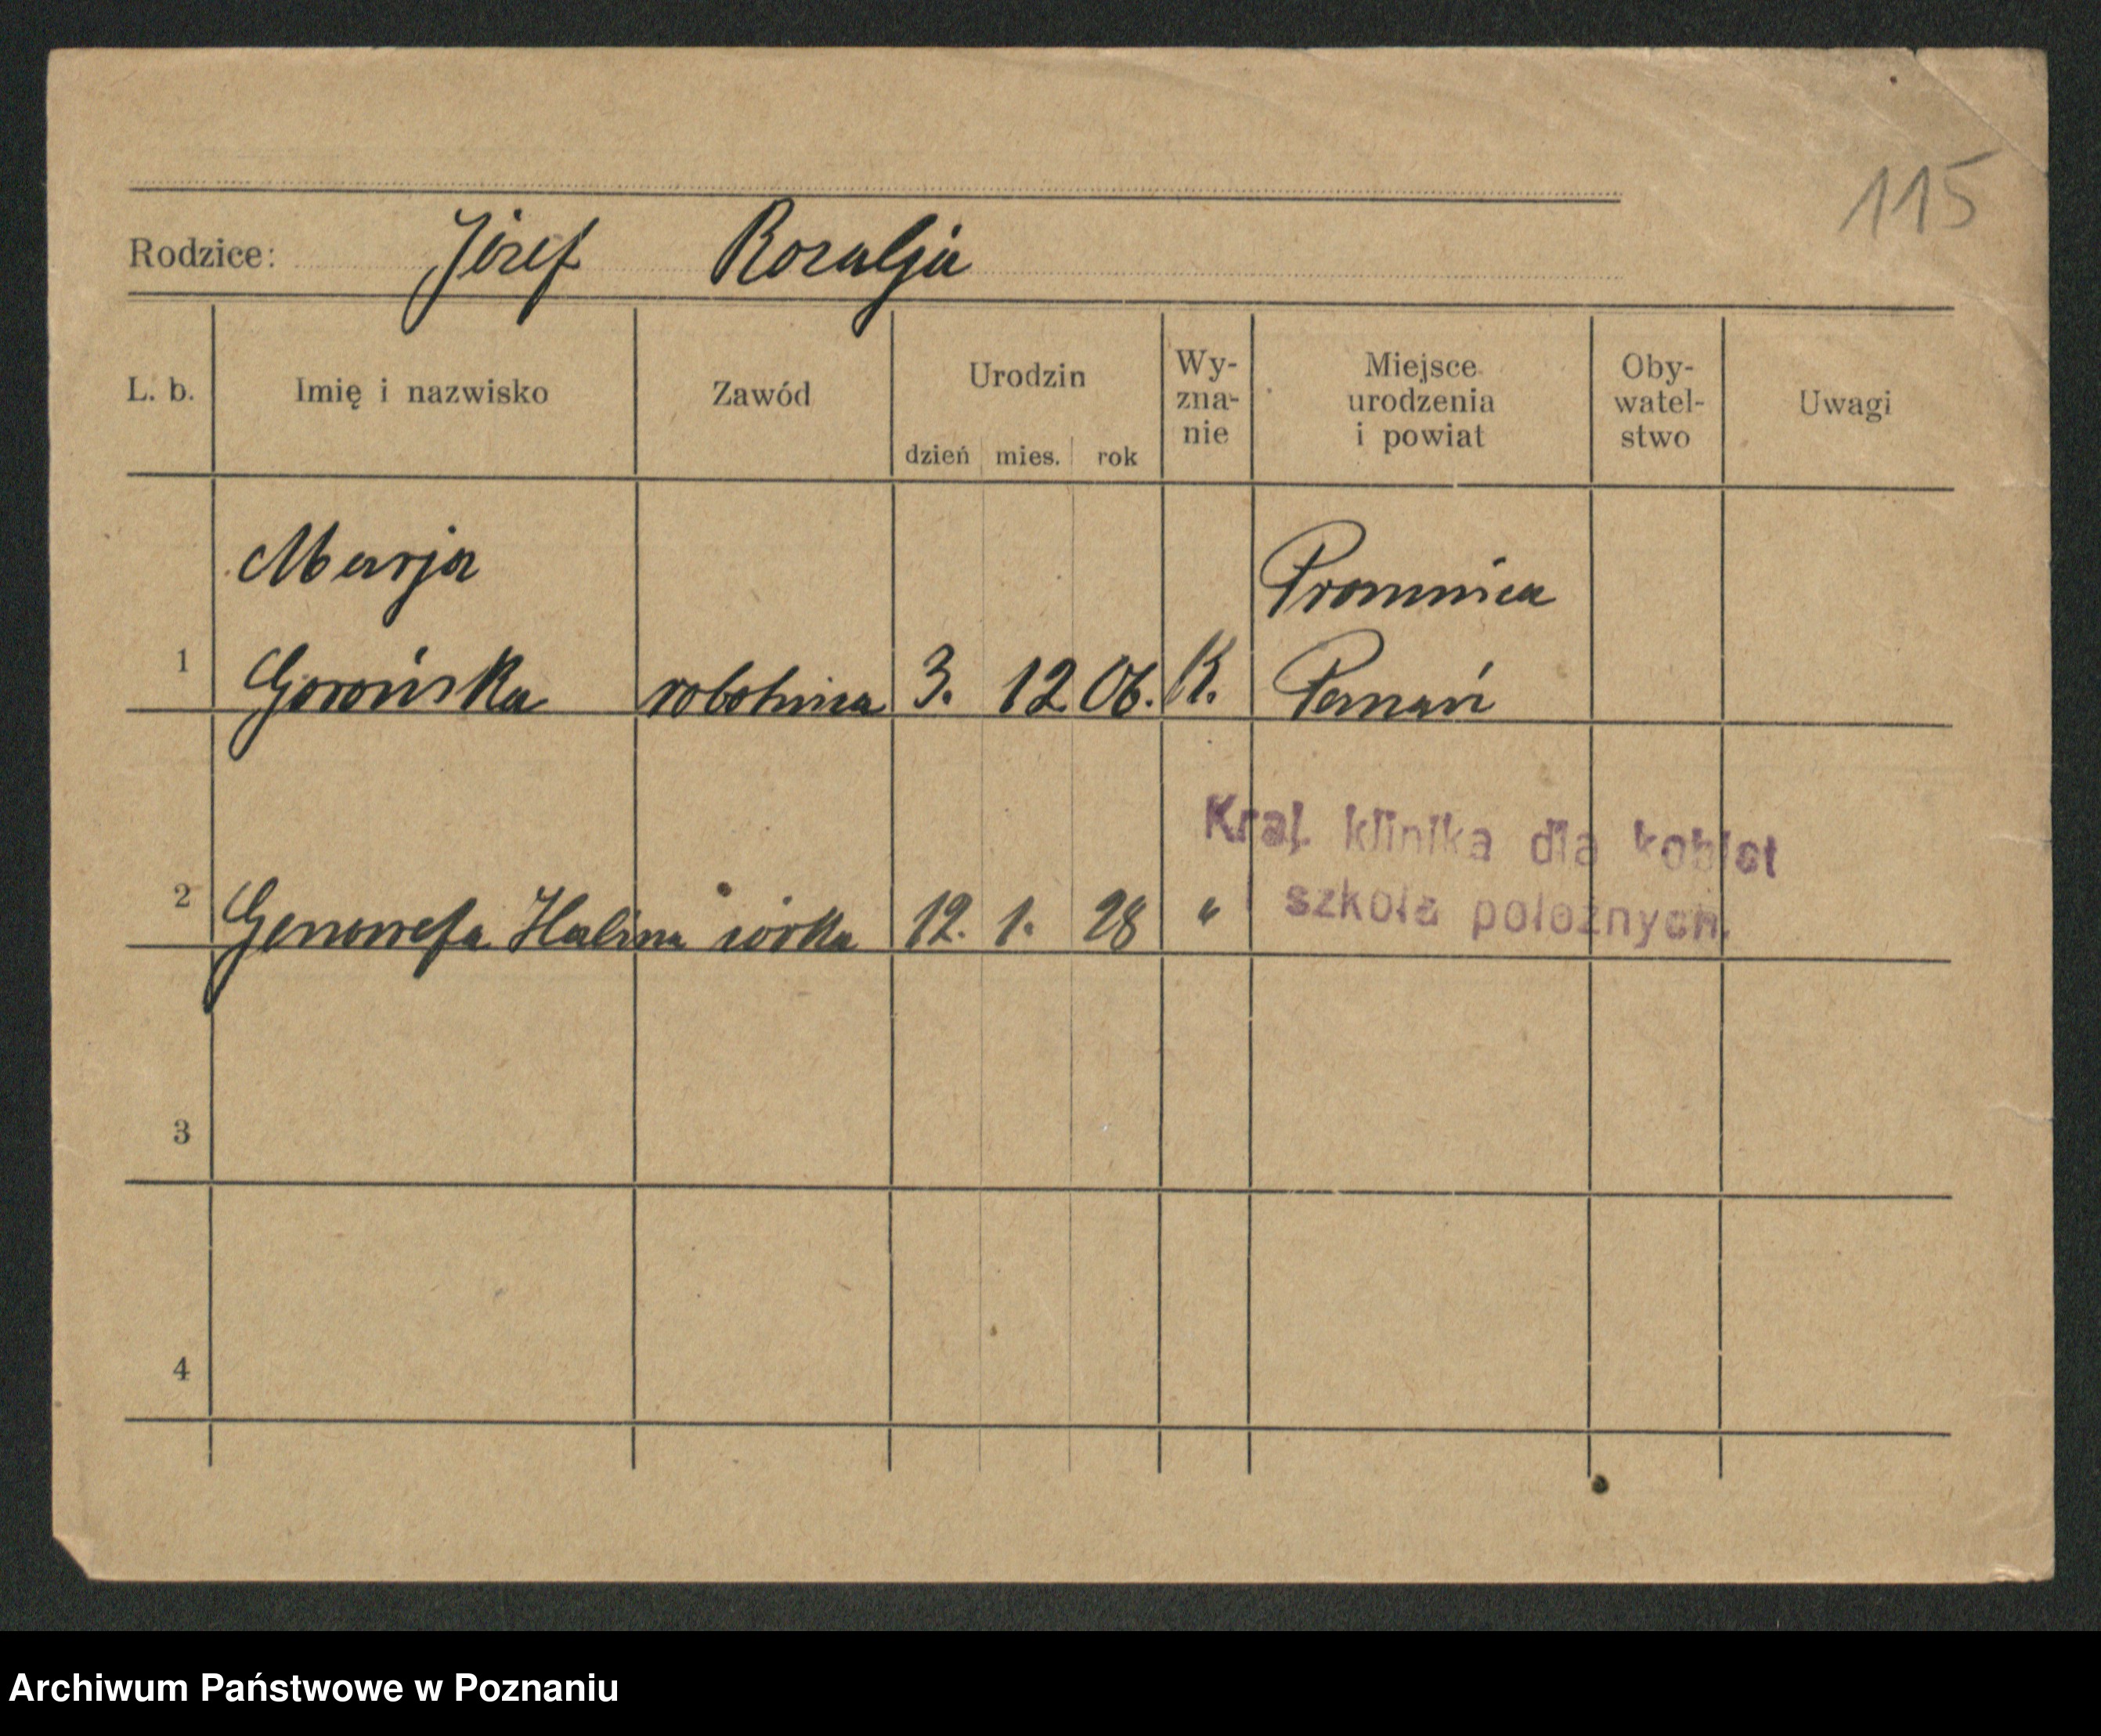 115
Rodzice: Józef Rozalja
L. b. Imię i nazwisko Zawód Urodzin dzień mies. rok Wy-zna-nie Miejsce urodzenia i powiat Oby-watel-stwo Uwagi
Marja Promnica
1 Gorońska robotnica 3. 12 06. K. Poznań
Kraj. klinika dla kobiet
i szkoła położnych.
2 Genowefa Halina córka 12. 1. 28 "
3
4
Archiwum Państwowe w Poznaniu